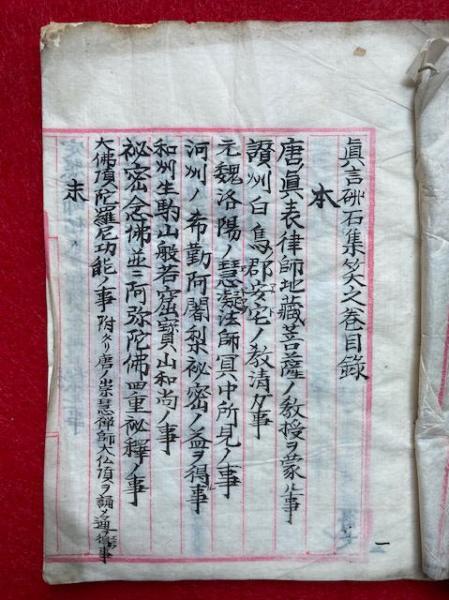 真言砿石集巻之目録
本
唐眞表律師地藏菩薩ノ教授ヲ蒙ル事
讃州白鳥郡安宅ノ教清ガ事
元魏洛陽ノ慧凝法師冥中所見ノ事
河州ノ希勤阿闍梨祕密ノ益ヲ得事
和州生駒山般若窟寳山和尚ノ事
祕密念佛並ニ阿弥陀佛四重祕釋ノ事
末
大佛頂陀羅尼功能ノ事 附タリ唐ノ崇慧禅師大仏頂ヲ誦メ通事
一